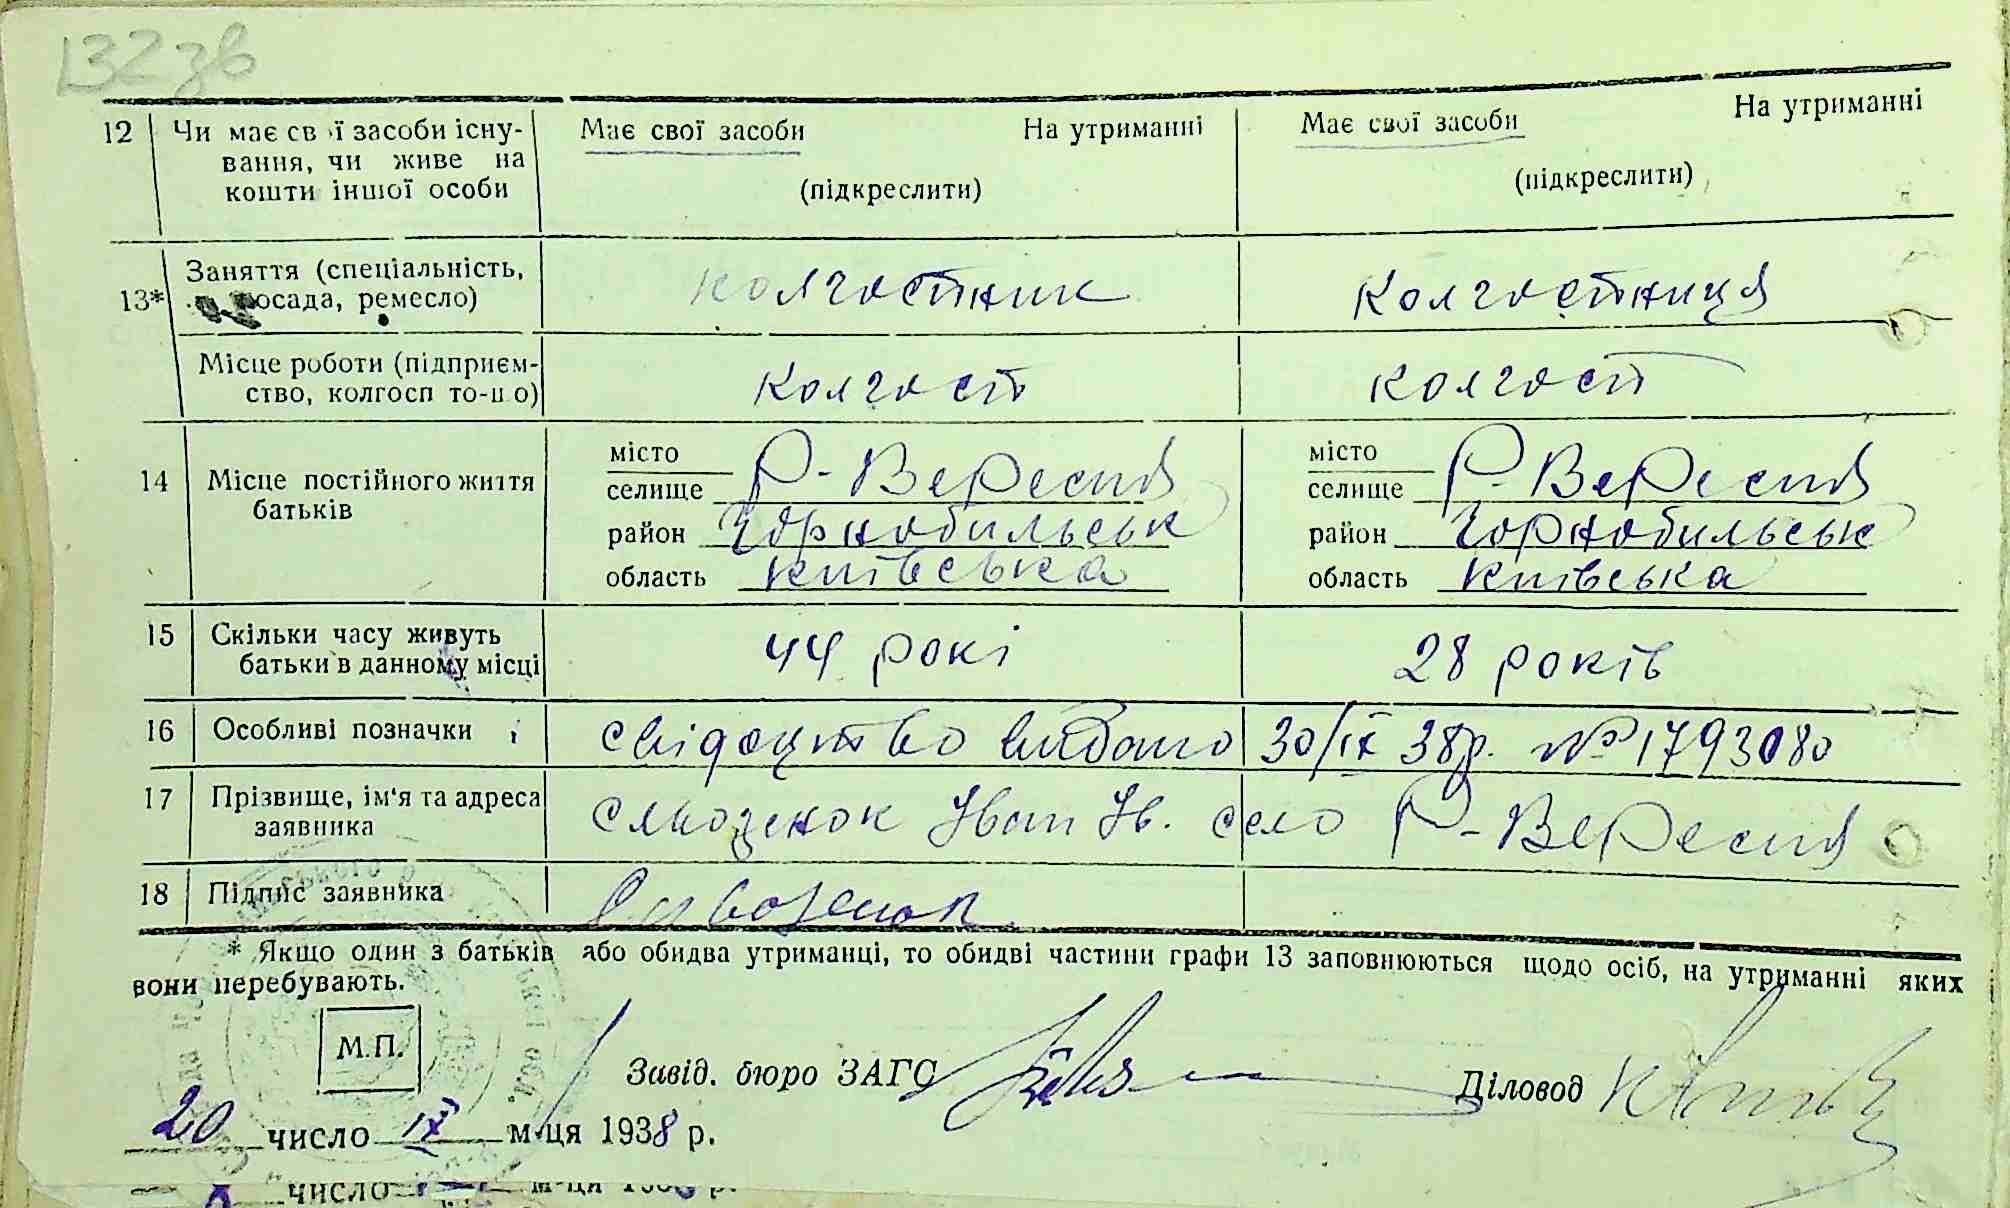 132 зв
12 Чи має св ї засоби існу- Має свої засоби На утриманні Має свої засоби На утриманні
вання, чи живе на
кошти іншої особи (підкреслити) (підкреслити)
13* Заняття (спеціальність, колгоспник колгоспниця
посада, ремесло)
Місце роботи (підприєм- колгосп колгосп
ство, колгосп то-що)
14 Місце постійного життя місто місто
батьків селище Р-Вересня селище Р-Вересня
район Чорнобильськ район Чорнобильськ
область київська область київська
15 Скільки часу живуть 44 рокі 28 років
батьки в данному місці
16 Особливі позначки свідоцтво видано 30/ІХ 38р. № 1793080
17 Прізвище, ім'я та адреса Сльозенок Іван Ів. село Р-Вересня
заявника
18 Підпис заявника
* Якщо один з батьків або обидва утриманці, то обидві частини графи 13 заповнюються щодо осіб, на утриманні яких
вони перебувають.
М.П. Завід. бюро ЗАГС Діловод
20 число ІХ м-ця 1938 р.
число м-ця 193 р.